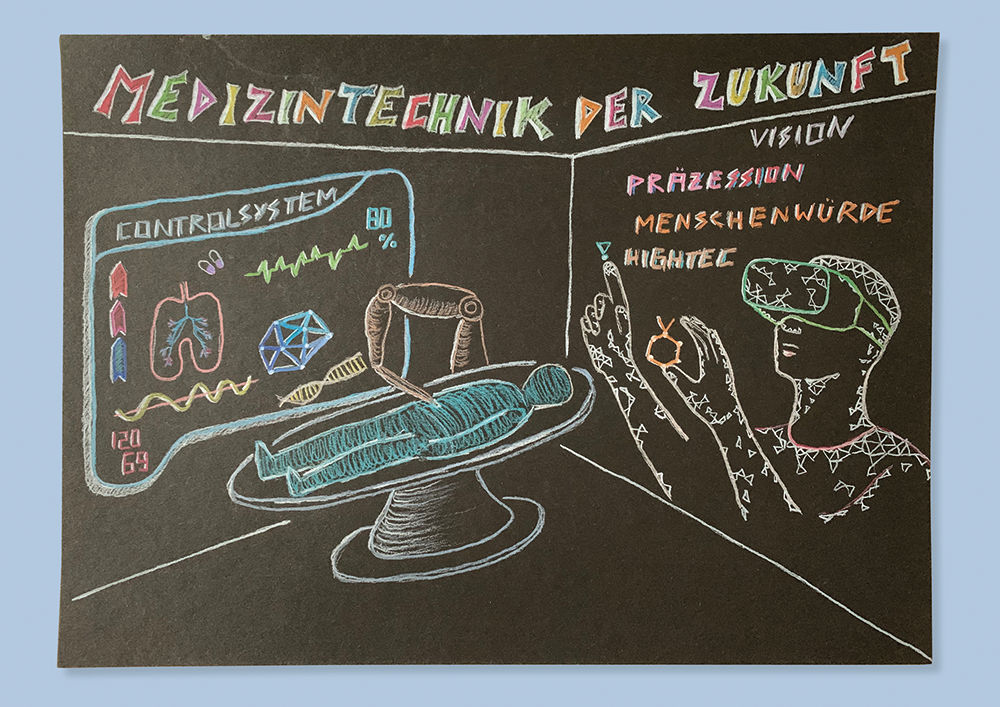 MEDIZINTECHNIK DER ZUKUNFT
VISION
PRÄZESSION
MENSCHENWÜRDE
HIGHTEC
CONTROLSYSTEM
80
%
120
69